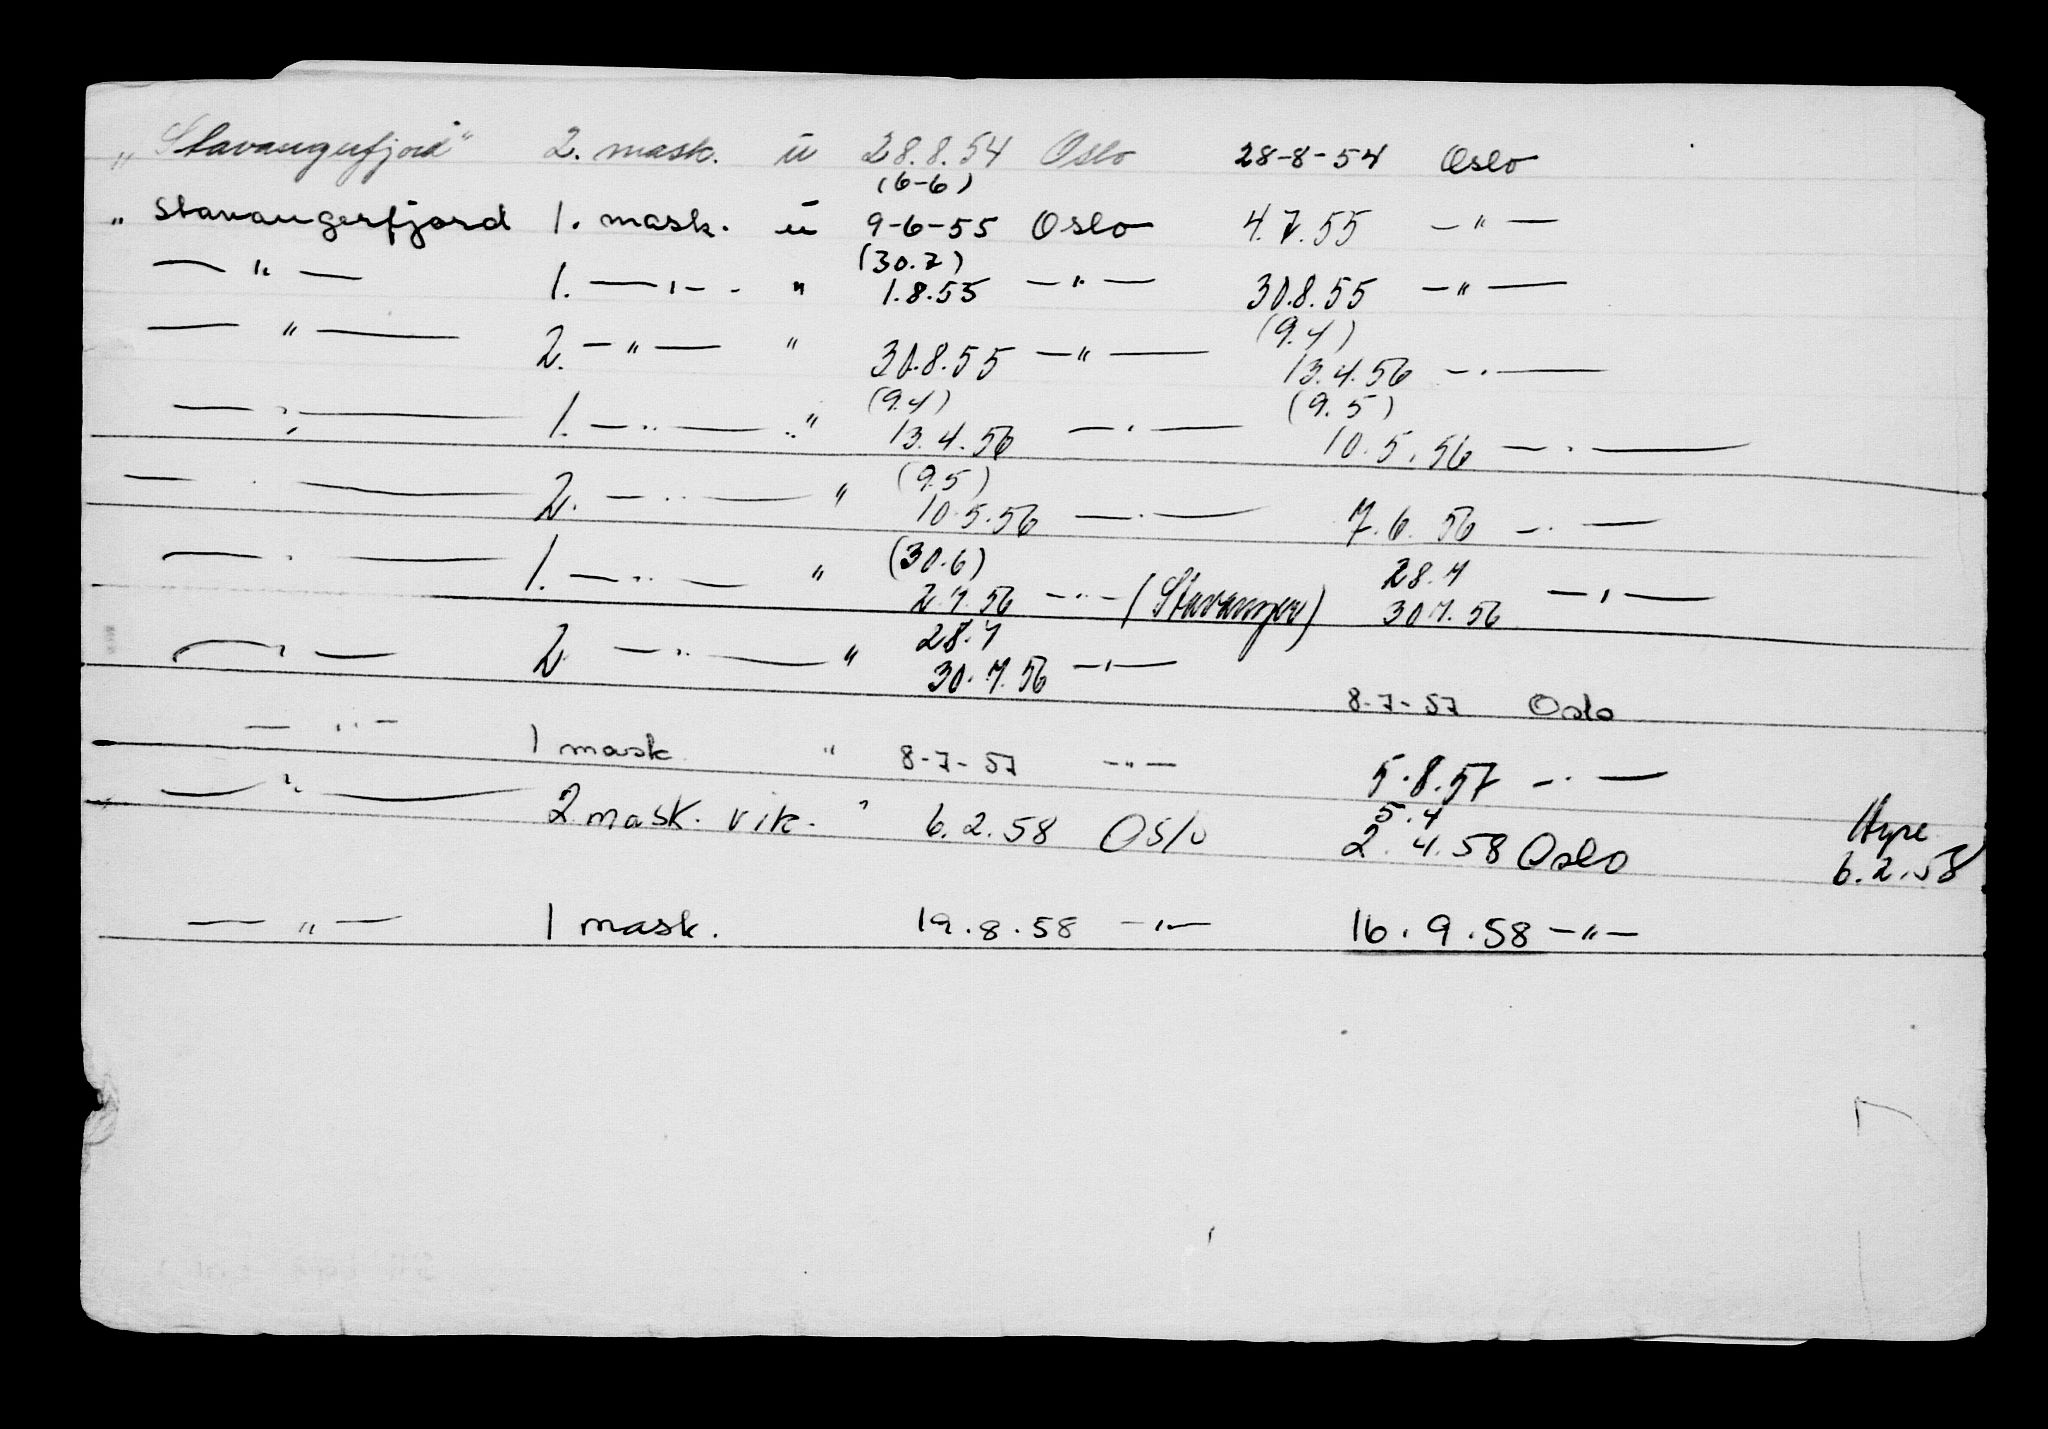 „ Stavangerfjord" 2. mask. u 28.8.54 Oslo 28-8-54 Oslo
(6-6)
„ Stavangerfjord 1. mask. u 9-6-55 Oslo 4.7.55 — " —
(30.7)
— " — 1. — " — " 1.8.55 — " — 30.8.55 — " —
(9.4)
— " — 2. — " — " 30.8.55 — " — 13.4.56 — " —
(9.4) (9.5)
— " — 1. — " — " 13.4.56 — " — 10.5.56 — " —
(9.5)
— " — 2. — " — " 10.5.56 — " — 7.6.56 — " —
(30.6) 28.7
— " — 1. — " — " 2.7.56 — " — (Stavanger) 30.7.56 — " —
28.7
— " — 2 — " — " 30.7.56 — " — 8-7-57 Oslo
— " — 1 mask " 8-7-57 — " — 5.8.57 — " —
5.4 Hyre
— " — 2 mask. vik. " 6.2.58 Oslo 2.4.58 Oslo 6.2.58
— " — 1 mask. 19.8.58 — " — 16.9.58 — " —